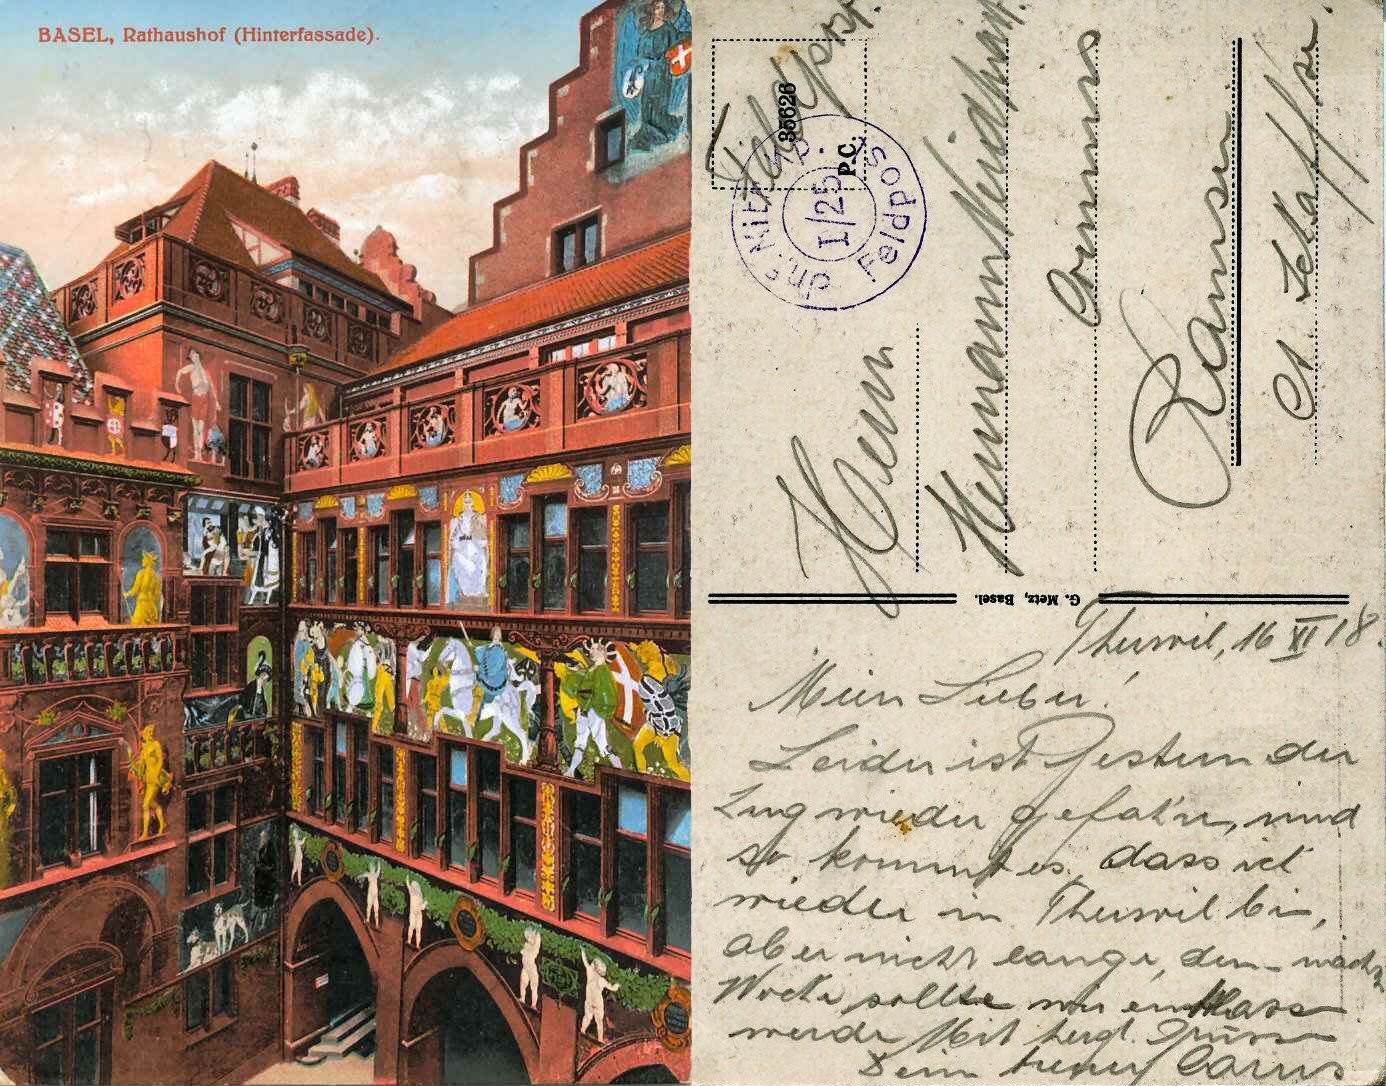 BASEL, Rathaushof (Hinterfassade).
Feldpost.
35626
P.C.
I/25
Feldpos
Herrn
Hermann
Ramsen
Ct. Schaffh
G. Metz, Basel.
Therwil, 16 XI 18.
Mein Lieber!
Leider ist Gestern der
Zug wieder gefahren, und
so kommt es, dass ich
wieder in Therwil bin,
aber nicht lange, den nächst
Woche sollte wir entlass
werde Mit herzl. Grüsse
Dein